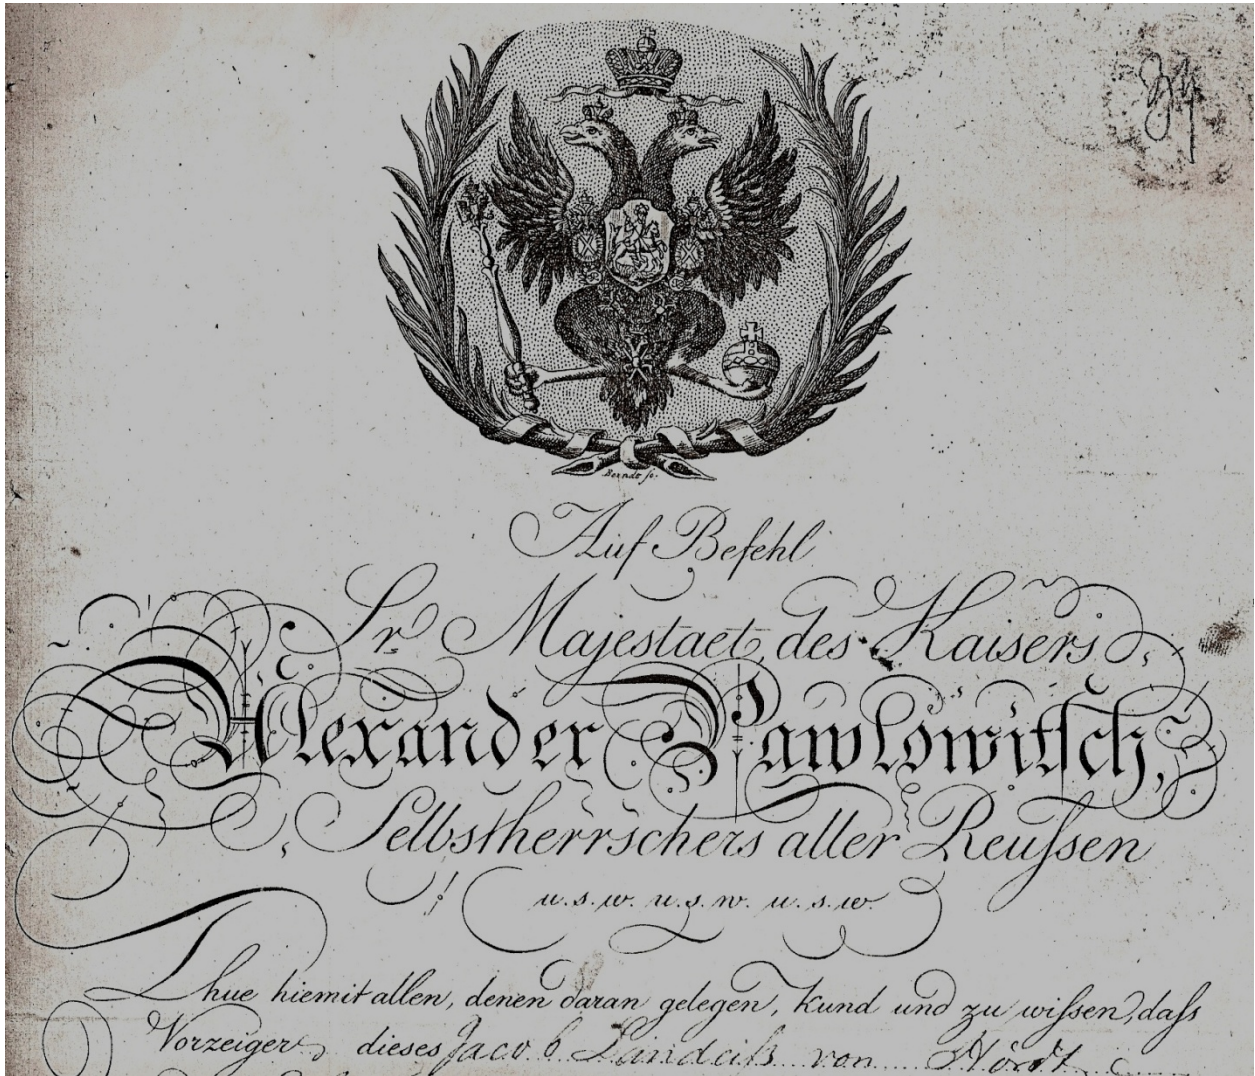 Berndt fc.
Auf Befehl
Sr. Majestaet des Kaisers
Alexander Pawlowitsch,
Selbstherrschers aller Reußen
u. s. w. u. s. w. u. s. w.
Thue hiemit allen, denen daran gelegen, kund und zu wißen, daß
Vorzeiger dieses Jacob Landeiß von Hördt